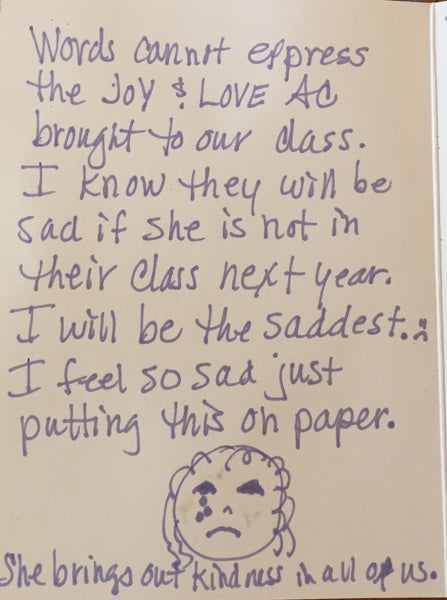 Words cannot express
the JOY & LOVE AC
brought to our class.
I know they will be
sad if she is not in
their class next year.
I will be the saddest. :(
I feel so sad just
putting this on paper.
She brings out kindness in all of us.